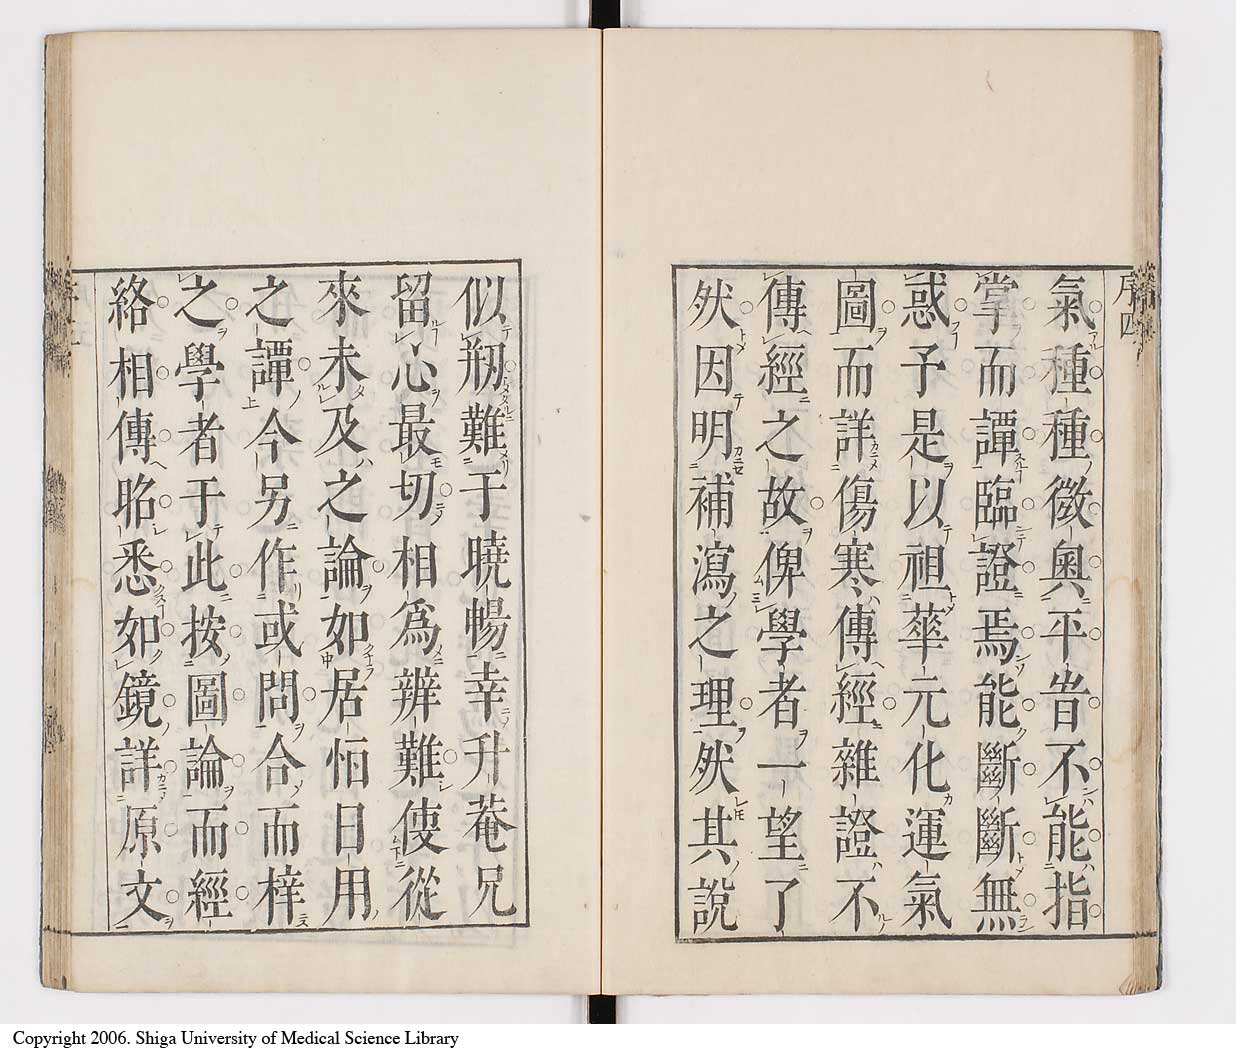 序四
氣種種微奧平昔不能指
掌而譚臨證焉能斷斷無
惑予是以祖華元化運氣
圖而詳傷寒傳經雜證不
傳經之故俾學者一望了
然因明補瀉之理然其說
似剏難于曉暢幸升菴兄
留心最切相爲辨難使從
來未及之論如居恒日用
之譚今另作或問合而梓
之學者于此按圖論而經
絡相傳昭悉如鏡詳原文
Copyright 2006. Shiga University of Medical Science Library